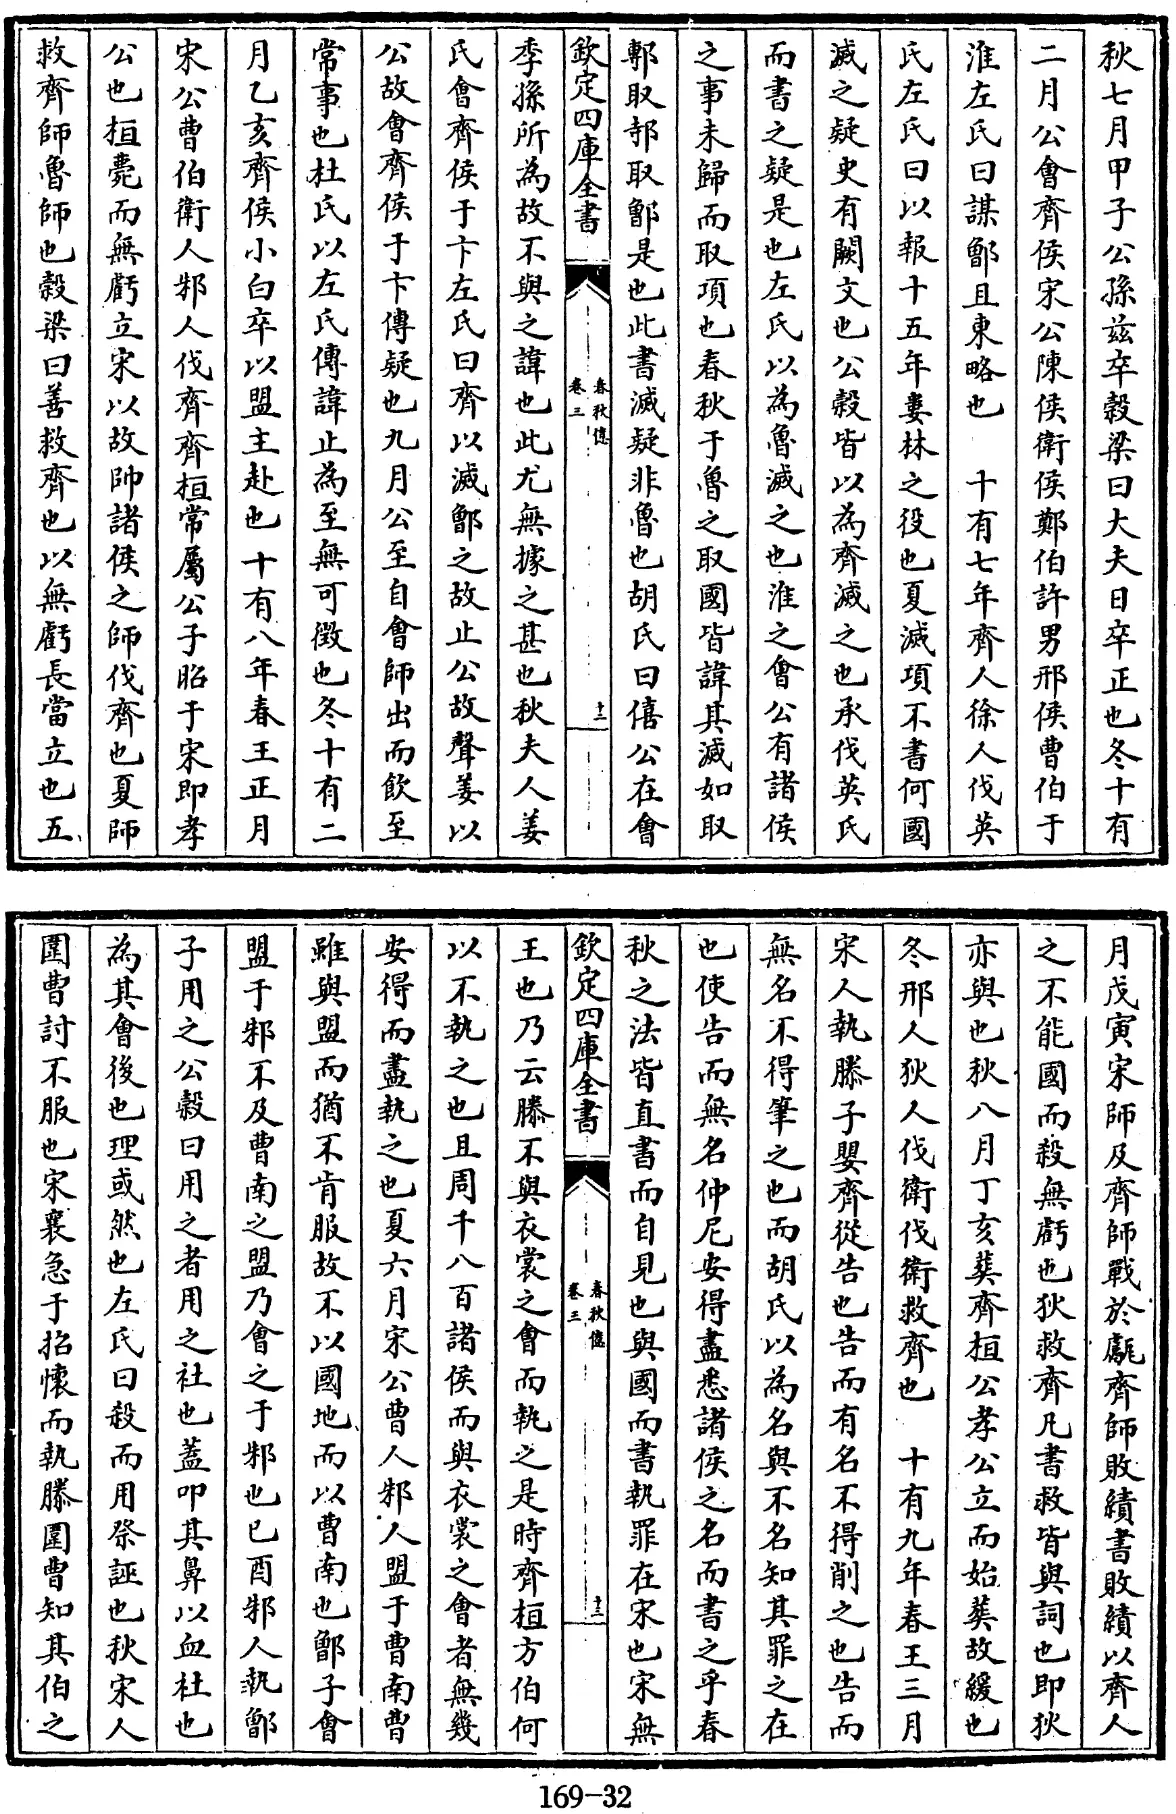 秋七月甲子公孫兹卒榖梁曰大夫日卒正也冬十有
二月公會齊侯宋公陳侯衛侯鄭伯許男邢侯曹伯于
淮左氏曰謀鄫且東略也　十有七年齊人徐人伐英
氏左氏曰以報十五年婁林之役也夏滅項不書何國
滅之疑史有闕文也公榖皆以為齊滅之也承伐英氏
而書之疑是也左氏以為魯滅之也淮之會公有諸侯
之事未歸而取項也春秋于魯之取國皆諱其滅如取
鄟取邿取鄫是也此書滅疑非魯也胡氏曰僖公在會
欽定四庫全書
春秋億
卷三
十二
季孫所為故不與之諱也此尤無據之甚也秋夫人姜
氏會齊侯于卞左氏曰齊以滅鄫之故止公故聲姜以
公故會齊侯于卞傳疑也九月公至自會師出而飲至
常事也杜氏以左氏傳諱止為至無可徵也冬十有二
月乙亥齊侯小白卒以盟主赴也　十有八年春王正月
宋公曹伯衛人邾人伐齊齊桓常屬公子昭于宋即孝
公也桓薨而無虧立宋以故帥諸侯之師伐齊也夏師
救齊師魯師也榖梁曰善救齊也以無虧長當立也五
月戊寅宋師及齊師戰於甗齊師敗績書敗績以齊人
之不能國而殺無虧也狄救齊凡書救皆與詞也即狄
亦與也秋八月丁亥葬齊桓公孝公立而始葬故緩也
冬邢人狄人伐衛伐衛救齊也　十有九年春王三月
宋人執滕子嬰齊從告也告而有名不得削之也告而
無名不得筆之也而胡氏以為名與不名知其罪之在
也使告而無名仲尼安得盡悉諸侯之名而書之乎春
秋之法皆直書而自見也與國而書執罪在宋也宋無
欽定四庫全書
春秋億
卷三
十三
王也乃云滕不與衣裳之會而執之是時齊桓方伯何
以不執之也且周千八百諸侯而與衣裳之會者無幾
安得而盡執之也夏六月宋公曹人邾人盟于曹南曹
雖與盟而猶不肯服故不以國地而以曹南也鄫子會
盟于邾不及曹南之盟乃會之于邾也己酉邾人執鄫
子用之公榖曰用之者用之社也蓋叩其鼻以血社也
為其會後也理或然也左氏曰殺而用祭誣也秋宋人
圍曹討不服也宋襄急于招懷而執滕圍曹知其伯之
169-32